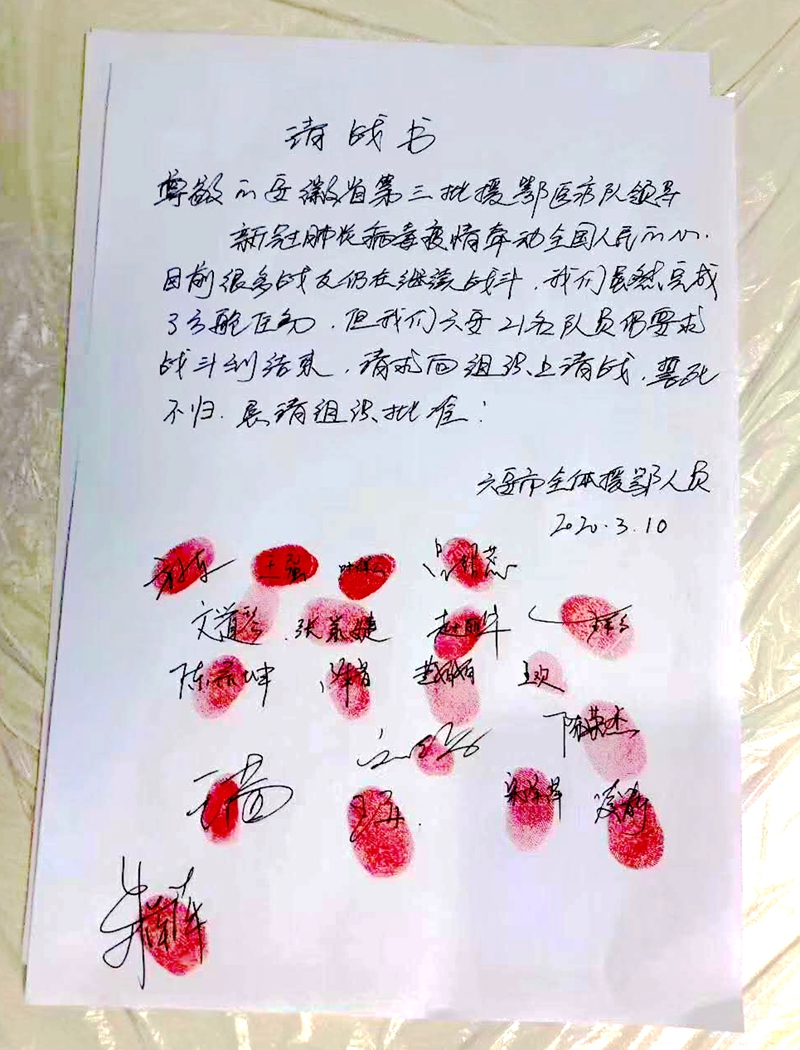 请战书
尊敬的安徽省第三批援鄂医疗队领导
新冠肺炎病毒疫情牵动全国人民的心.
目前很多战友仍在继续战斗,我们虽然完成
了方舱任务,但我们六安21名队员仍要求
战斗到结束,请求向组织上请战,誓死
不归.恳请组织批准!
六安市全体援鄂人员
2020.3.10
王强
文道琴 张荣婕 赵丽华
陈荣坤 楚娟娟 王欢
陈荣杰
王琦
凌静
朱萍萍